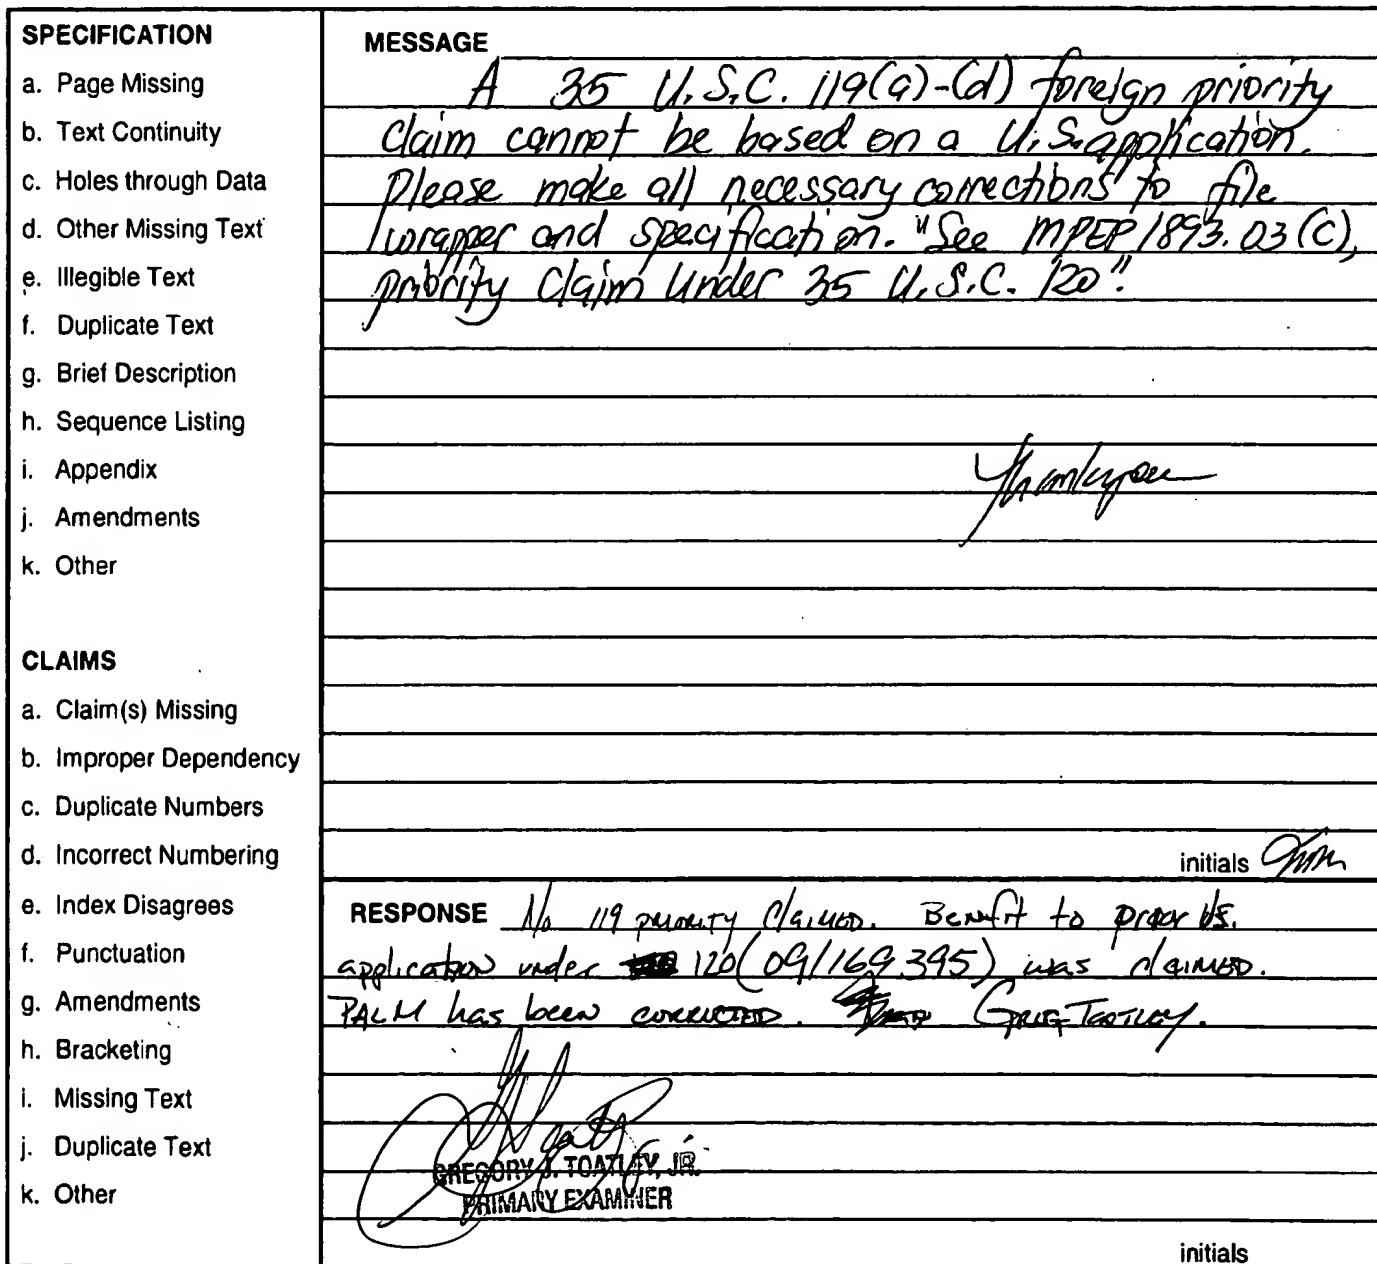 SPECIFICATION
a. Page Missing
b. Text Continuity
c. Holes through Data
d. Other Missing Text
e. Illegible Text
f. Duplicate Text
g. Brief Description
h. Sequence Listing
i. Appendix
j. Amendments
k. Other
CLAIMS
a. Claim(s) Missing
b. Improper Dependency
c. Duplicate Numbers
d. Incorrect Numbering
e. Index Disagrees
f. Punctuation
g. Amendments
h. Bracketing
i. Missing Text
j. Duplicate Text
k. Other
MESSAGE
A 35 U.S.C. 119(a)-(d) foreign priority
claim cannot be based on a U.S. application.
Please make all necessary corrections to file
wrapper and specification. "See MPEP 1893.03(c),
priority claim under 35 U.S.C. 120".
Thank you
initials
RESPONSE No 119 priority claimed. Benefit to prior US.
application under 120 (09/169,395) was claimed.
PALM has been corrected. Greg Toatley.
GREGORY J. TOATLEY, JR.
PRIMARY EXAMINER
initials